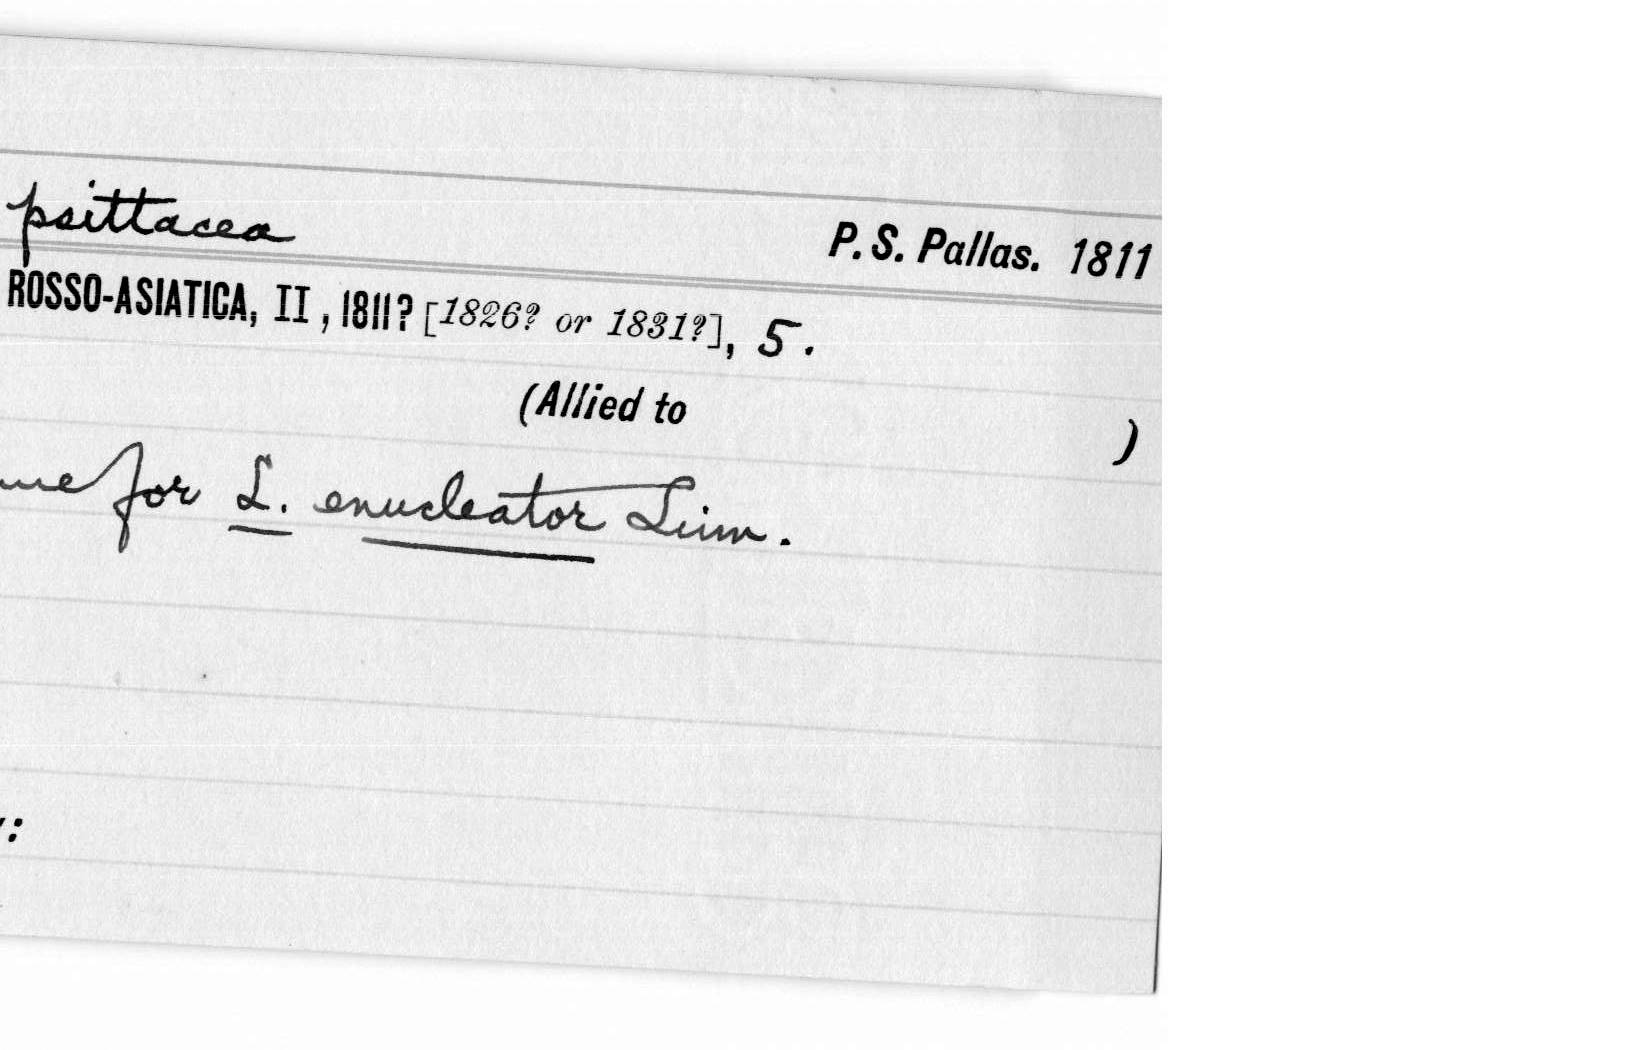 psittacea P. S. Pallas. 1811
ROSSO-ASIATICA, II, 1811? [1826? or 1831?], 5.
(Allied to )
for L. enucleator Linn.
: